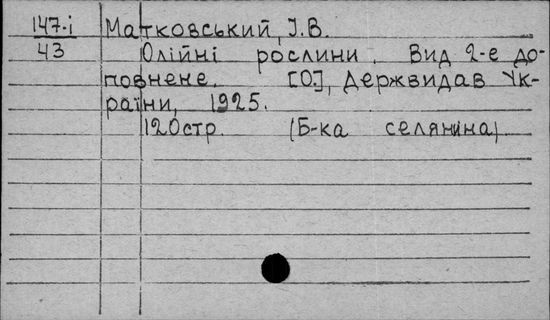 147-і Матковський, І.В.
43 Олійні рослини. Вид 2-е до-
повнене. [О], Держвидав Ук-
раїни, 1925.
120стр. (Б-ка селянина)